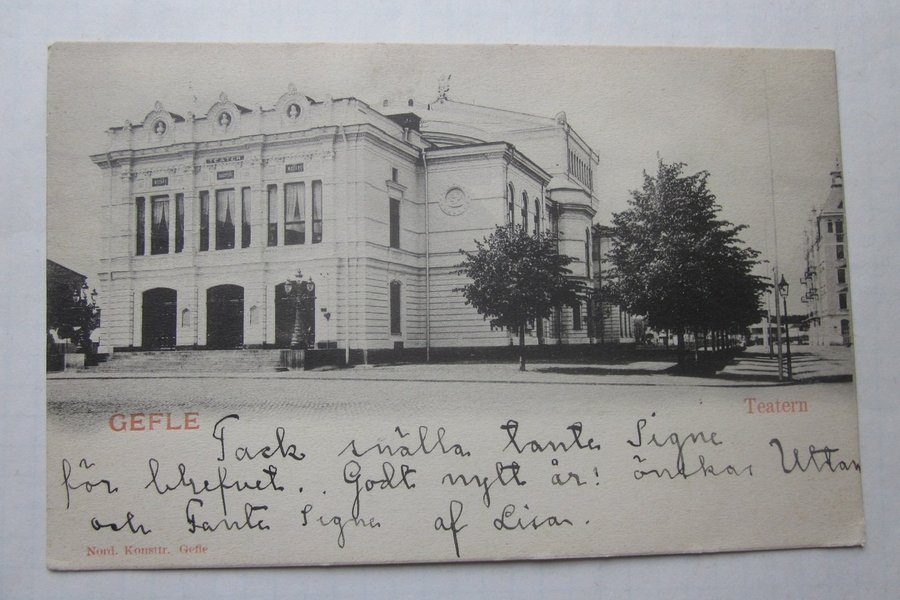 TEATERN
GEFLE
Teatern
Tack snälla tante Signe
för brefvet. Godt nytt år! önskas Uttan
och Tante Signe af Lisa.
Nord. Konsttr. Gefle